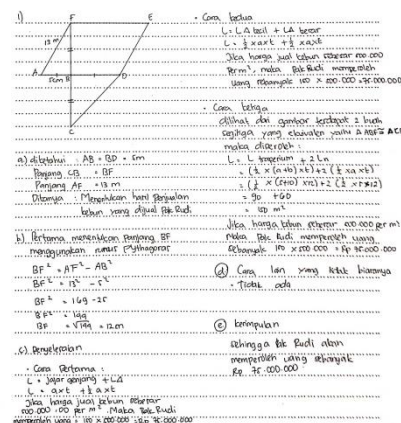 1)
F
E
13 m
A
5cm B
D
C
a) diketahui : AB = BD = 5m
Panjang CB = BF
Panjang AF = 13 m
Ditanya : Menentukan hasil penjualan
kebun yang dijual Pak Rudi
b) Pertama menentukan Panjang BF
menggunakan rumus Pythagoras
BF² = AF² - AB²
BF² = 13² - 5²
BF² = 169 - 25
BF² = 144
BF = √144 = 12m
c) Penyelesaian
• Cara Pertama :
L = jajar genjang + LΔ
L = a×t + ½ a×t
Jika harga jual kebun sebesar
per m². Maka Pak Rudi
memperoleh uang = 150 × 500.000 = Rp 75.000.000
• Cara kedua
L = LΔ kecil + LΔ besar
L = ½ x a x t + ½ x a x t
Jika harga jual kebun sebesar 500.000
Per m², maka Pak Rudi memperoleh
uang sebanyak 150 × 500.000 = 75.000.000
• Cara ketiga
dilihat dari gambar terdapat 2 buah
segitiga yang ekuivalen yaitu Δ ABF ≅
maka diperoleh :
L = L trapesium + 2 LΔ
= (½ × (a+b) × t) + 2 (½ × a × t)
= (½ × (5+10) × 12) + 2 (½ × 5 × 12)
= 90 + 60
= 150 m²
Jika harga kebun sebesar 500.000 per m²
Maka Pak Rudi memperoleh uang
Sebanyak 150 × 500.000 = Rp 75.000.000
d) Cara lain yang tidak biasanya
- Tidak ada
e) kesimpulan
Sehingga Pak Rudi akan
memperoleh uang sebanyak
Rp 75.000.000